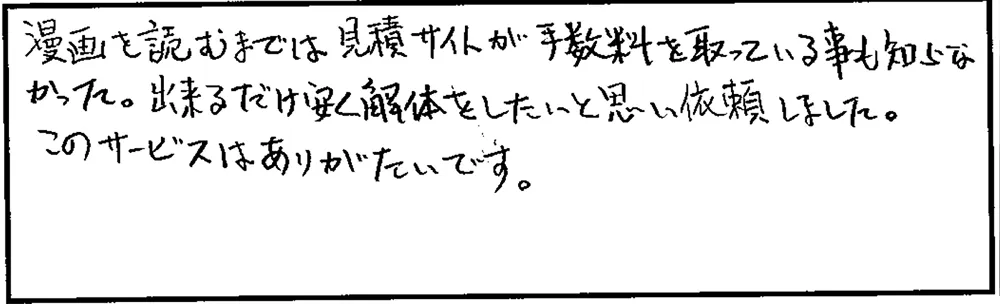 漫画を読むまでは見積サイトが手数料を取っている事も知らな
かった。出来るだけ安く解体をしたいと思い依頼しました。
このサービスはありがたいです。